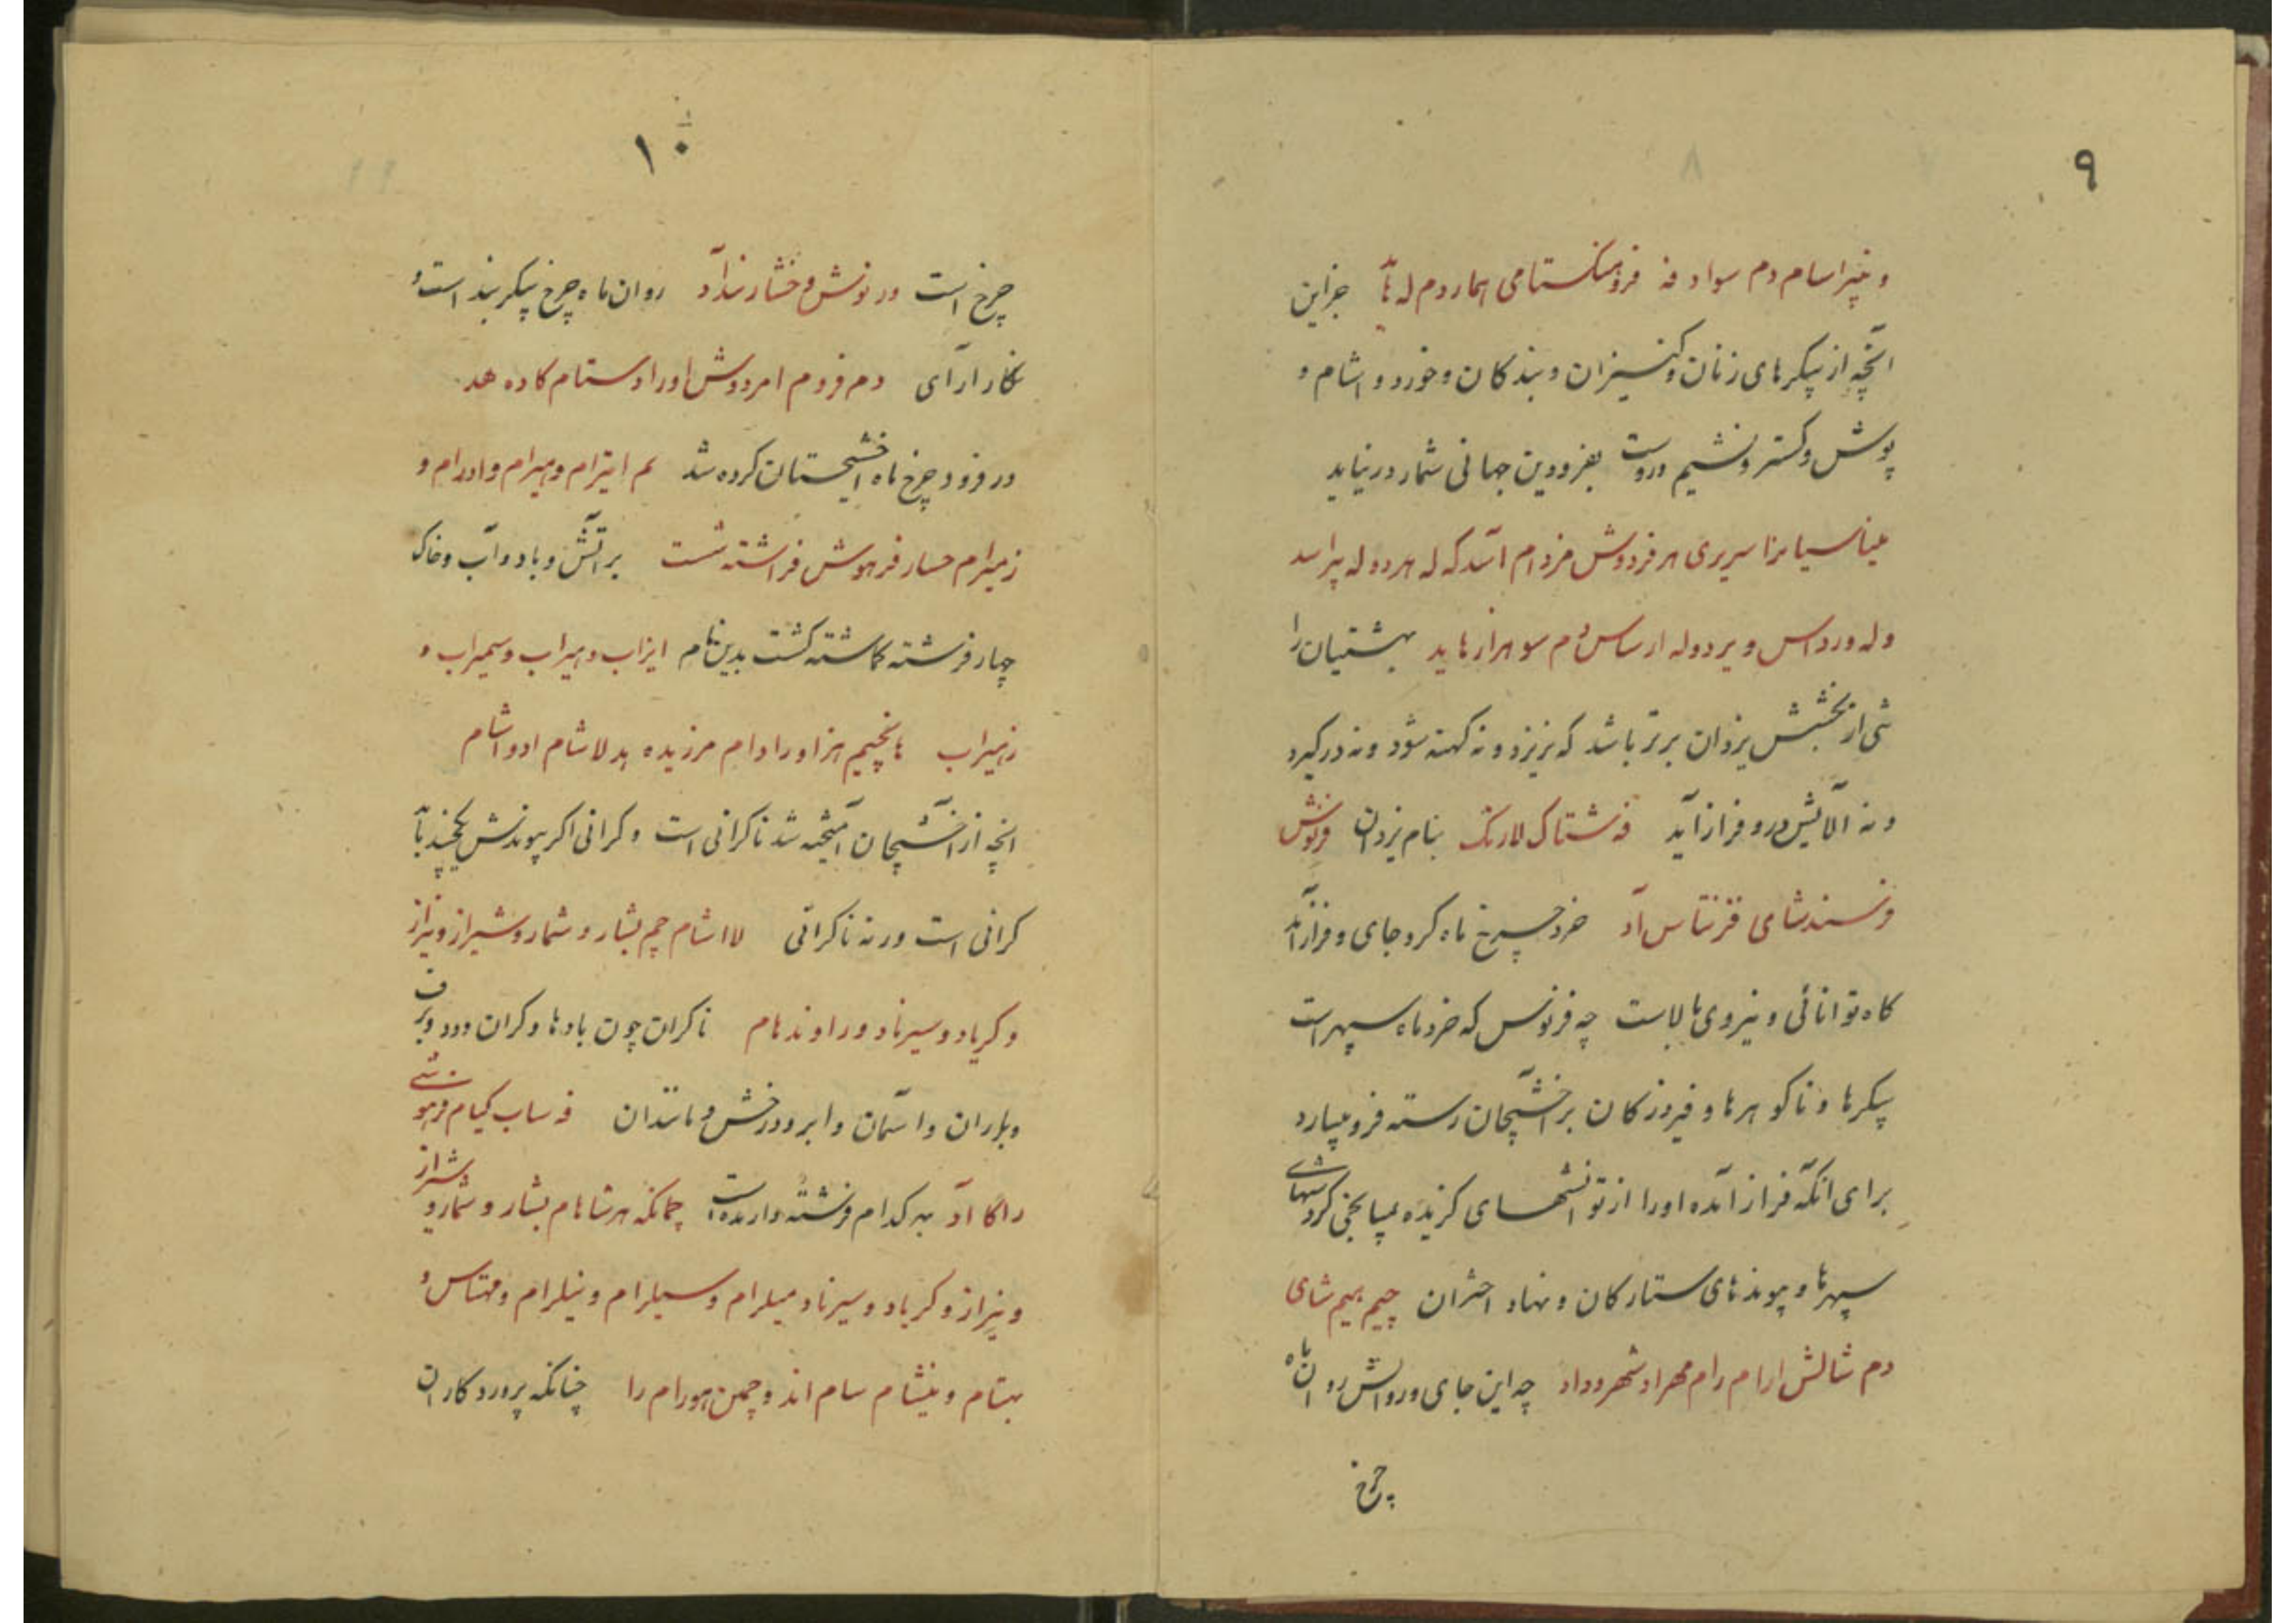 ۹
و خپراسام دم سواد فه فروهنکستامی اهماردم له یا جزاین
انچه از پیکرهای زنان وکنیزان و بندکان وخورد و اشام و
پوش وکستر ونشیم دروست بفرودین جهانی شمار درنیاید
میناسیا مزا سریری هرفردوش مزدام آسد که له هردو له پراسد
و له ورداس و یردوله ارساس دم سو هراز هاید بهشتیان را
تنی از بخشش یزدان برتر باشد که نریزد و نه کهنه شود ونه درد کیرد
و نه آلایش درو فراز آید فه شتاک لارنک بنام یزدان فرنوش
ورسندشامی فزنتاس آد خرد چرخ ماه کرد جای و فراز آمد
کاه توانائی و نیروی بالاست چه فرنوس که خرد ماه سپهر است
پیکرها و ناکوهرها و فیروزکان براخشیجان رسته فرو میبارد
برای آنکه فراز آمده اورا از توانشهای کزیده بمیانجی کردشهای
سپهرها و پیوندهای ستارکان و نهاد اختران چیم بهیم شای
دم شالش ارام رام مهراد شهرو داد چه این جای وروانش روان ماه
چرخ
۱۰
چرخ است ورنوش وخشار ندارآد روان ماه چرخ پیکربند است و
نکار ارای دم فروم امردوش اورادستام کاده هد
در فرود چرخ ماه اخشیجستان کرده شد لم ایترام وهیرام وادرام و
زمیرام حسار فرهوش فراشته شت بر آتش و باد و آب و خاک
چهار فرشته کماشته کشت بدین نام ایزاب وهیراب وسمیراب و
زهیراب هانچیم هزاورادام مرزیده هد لاشام ادو اشام
انچه از اخشیجان آمیخته شد ناکرانی است و کرانی اکر پیوندش بچند پاید
کرانی است ورنه ناکرانی لااشام چم بشار و شمار وشیراز ونیراز
و کریاد و سیرناد وراوند هام ناکران چون بادها وکران ودود وبرف
وباران واسمان وابر ودرخش وماندان فه ساب کیام فرهوشی
راکا آد بهر کدام فرشته دارنده است چمانکه هرشاهام بشار و شمار و شیراز
و نیراز و کرباد و سیرناد میلرام و سیلرام و نیلرام ومهتاس و
بهتام و نیشام سام اند و چمن هورام را چنانکه پروردکاران